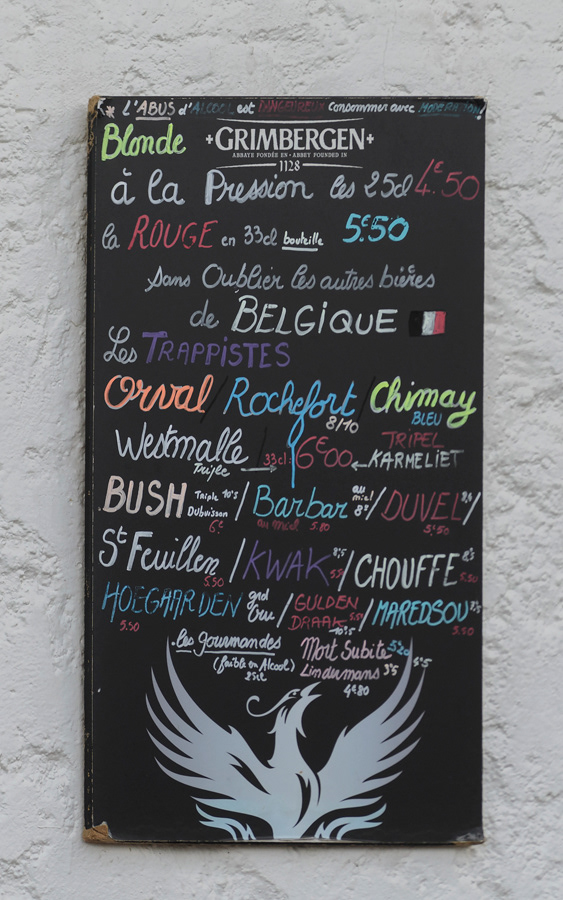 * L'ABUS d'ALCOOL est DANGEREUX Consommer avec MODERATION!
Blonde GRIMBERGEN
ABBAYE FONDÉE EN · ABBEY FOUNDED IN
1128
à la Pression les 25cl 4€50
la ROUGE en 33cl bouteille 5€50
sans Oublier les autres bières
de BELGIQUE
Les TRAPPISTES
Orval / Rochefort 8/10 / Chimay BLEU
Westmalle Triple → 33cl: 6€00 ← TRIPEL KARMELIET
BUSH Triple 10°5 Dubuisson 6€ / Barbar au miel 8° au miel 5.80 / DUVEL 5€50 /
St Feuillen 5.50 / KWAK 8°5 / CHOUFFE 8°5 5.50
HOEGAARDEN grd Cru 5.50 / GULDEN DRAAK 10°5 / MAREDSOU 5.50
les gourmandes Mort Subite 5.20
(faible en Alcool) Lindermans 3°5
25cl 4€80